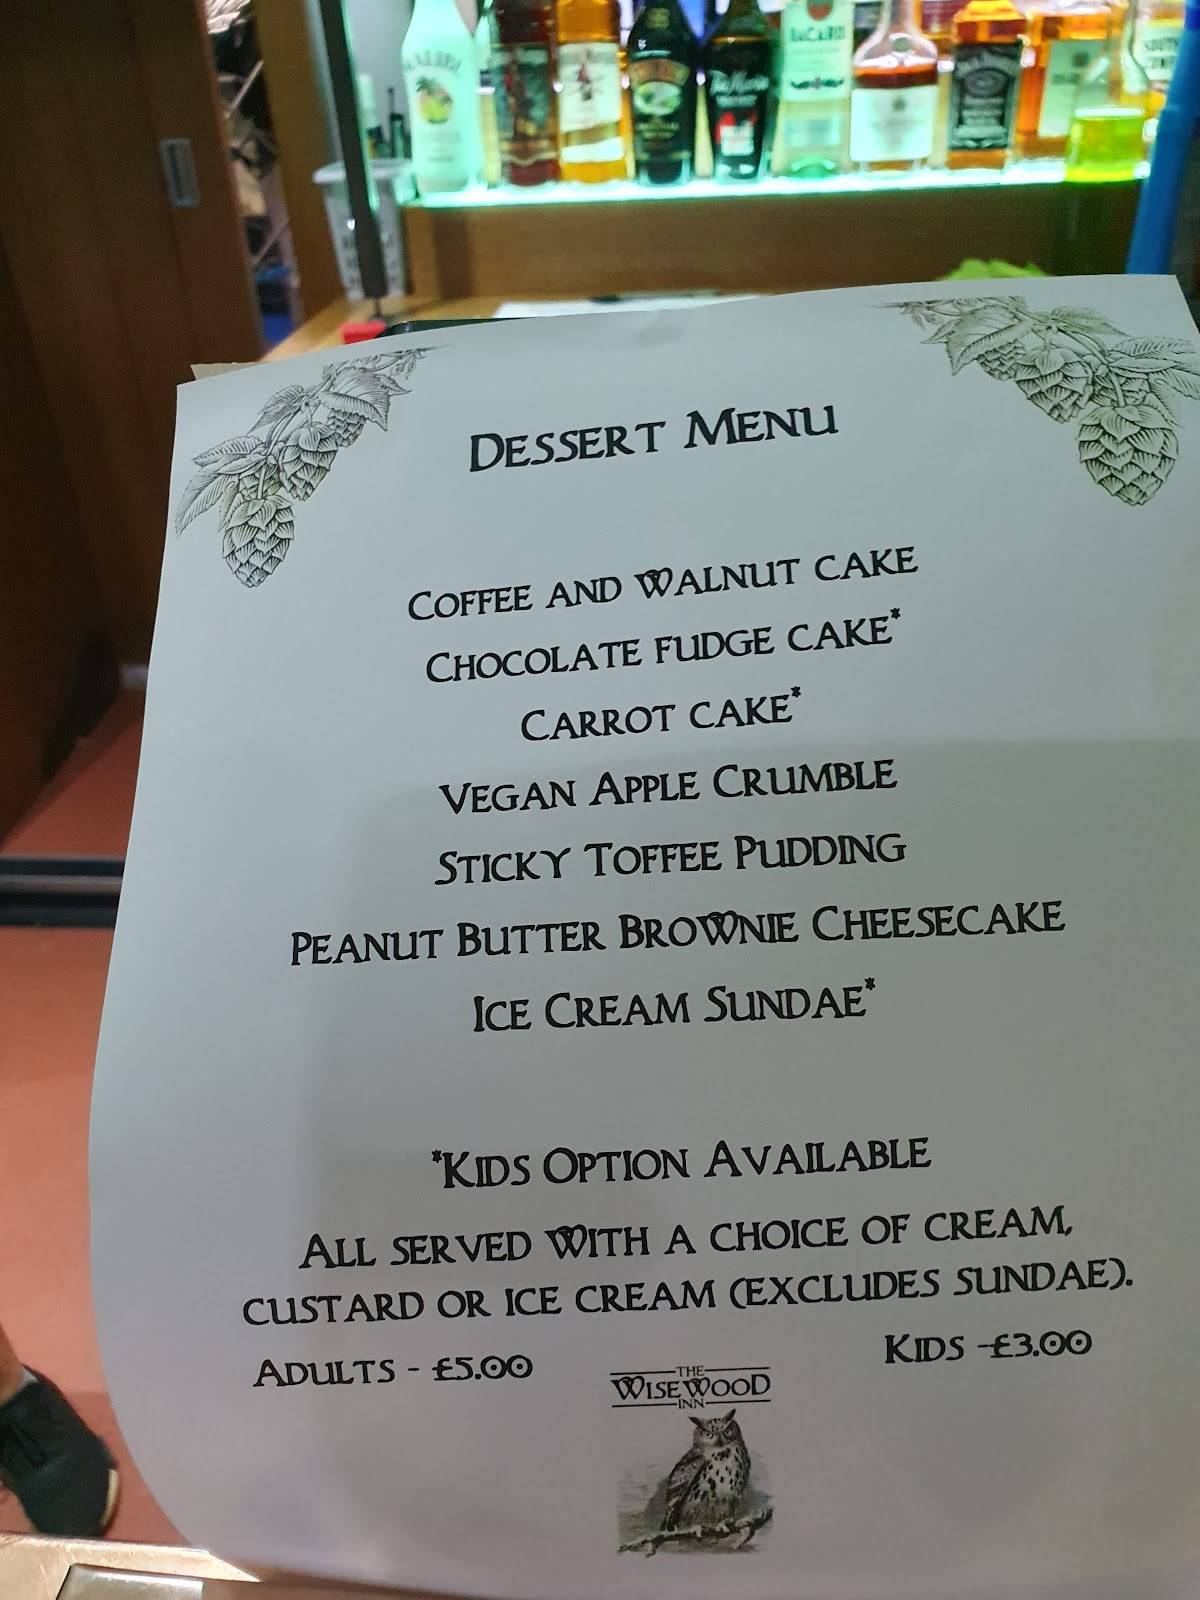 MALIBU
BACARDI
DESSERT MENU
COFFEE AND WALNUT CAKE
CHOCOLATE FUDGE CAKE*
CARROT CAKE*
VEGAN APPLE CRUMBLE
STICKY TOFFEE PUDDING
PEANUT BUTTER BROWNIE CHEESECAKE
ICE CREAM SUNDAE*
*KIDS OPTION AVAILABLE
ALL SERVED WITH A CHOICE OF CREAM,
CUSTARD OR ICE CREAM (EXCLUDES SUNDAE).
ADULTS - £5.00
KIDS -£3.00
THE
WISEWOOD
INN